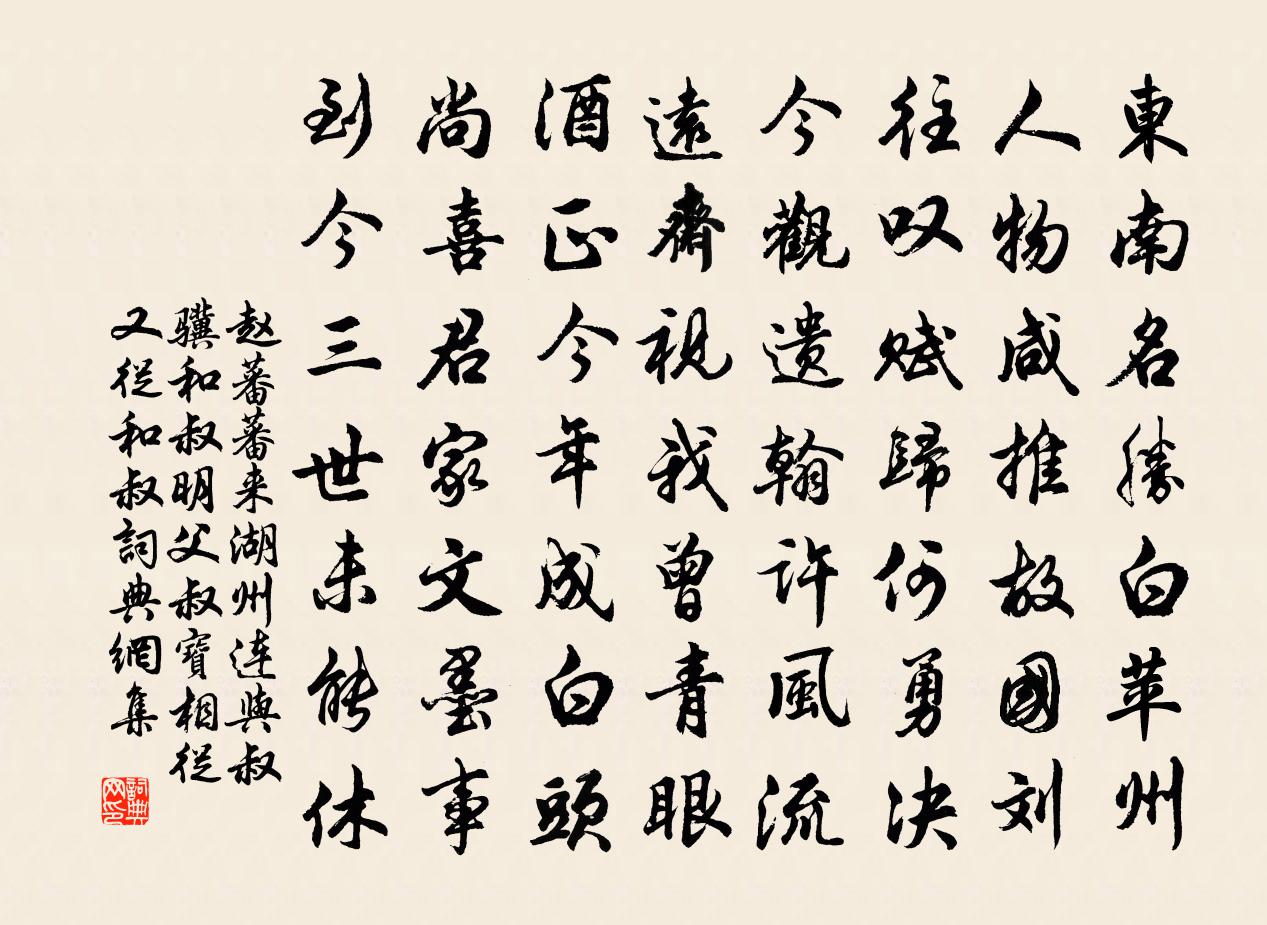 東南名勝白苹州
人物咸推故國刘
往叹赋歸何勇决
今觀遺翰許風流
遠齋視我曾青眼
酒正今年成白頭
尚喜君家文墨事
到今三世未能休
赵蕃蕃来湖州连與叔
骥和叔明父叔寶相從
又從和叔詞典網集
詞典
网印